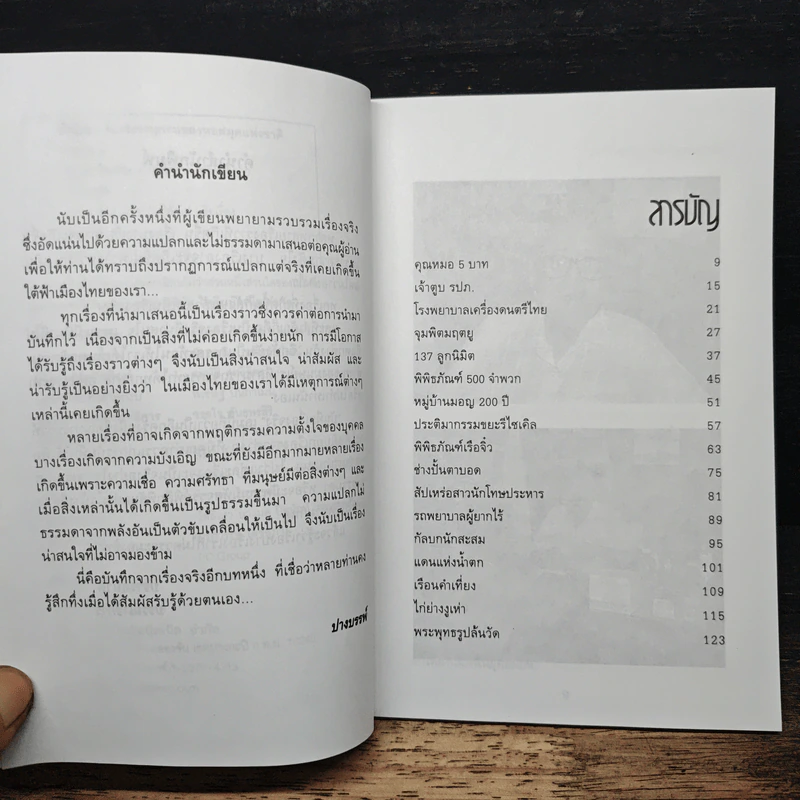 คำนำนักเขียน
นับเป็นอีกครั้งหนึ่งที่ผู้เขียนพยายามรวบรวมเรื่องจริง
ซึ่งอัดแน่นไปด้วยความแปลกและไม่ธรรมดามาเสนอต่อคุณผู้อ่าน
เพื่อให้ท่านได้ทราบถึงปรากฏการณ์แปลกแต่จริงที่เคยเกิดขึ้น
ใต้ฟ้าเมืองไทยของเรา...
ทุกเรื่องที่นำมาเสนอนี้เป็นเรื่องราวซึ่งควรค่าต่อการนำมา
บันทึกไว้ เนื่องจากเป็นสิ่งที่ไม่ค่อยเกิดขึ้นง่ายนัก การมีโอกาส
ได้รับรู้ถึงเรื่องราวต่างๆ จึงนับเป็นสิ่งน่าสนใจ น่าสัมผัส และ
น่ารับรู้เป็นอย่างยิ่งว่า ในเมืองไทยของเราได้มีเหตุการณ์ต่างๆ
เหล่านี้เคยเกิดขึ้น
หลายเรื่องที่อาจเกิดจากพฤติกรรมความตั้งใจของบุคคล
บางเรื่องเกิดจากความบังเอิญ ขณะที่ยังมีอีกมากมายหลายเรื่อง
เกิดขึ้นเพราะความเชื่อ ความศรัทธา ที่มนุษย์มีต่อสิ่งต่างๆ และ
เมื่อสิ่งเหล่านั้นได้เกิดขึ้นเป็นรูปธรรมขึ้นมา ความแปลกไม่
ธรรมดาจากพลังอันเป็นตัวขับเคลื่อนให้เป็นไป จึงนับเป็นเรื่อง
น่าสนใจที่ไม่อาจมองข้าม
นี่คือบันทึกจากเรื่องจริงอีกบทหนึ่ง ที่เชื่อว่าหลายท่านคง
รู้สึกทึ่งเมื่อได้สัมผัสรับรู้ด้วยตนเอง...
ปางบรรพ์
สารบัญ
คุณหมอ 5 บาท 9
เจ้าตูบ รปภ. 15
โรงพยาบาลเครื่องดนตรีไทย 21
จุมพิตมฤตยู 27
137 ลูกนิมิต 37
พิพิธภัณฑ์ 500 จำพวก 45
หมู่บ้านมอญ 200 ปี 51
ประติมากรรมขยะรีไซเคิล 57
พิพิธภัณฑ์เรือจิ๋ว 63
ช่างปั้นตาบอด 75
สัปเหร่อสาวนักโทษประหาร 81
รถพยาบาลผู้ยากไร้ 89
กัลบกนักสะสม 95
แดนแห่งน้ำตก 101
เรือนคำเที่ยง 109
ไก่ย่างงูเห่า 115
พระพุทธรูปล้นวัด 123